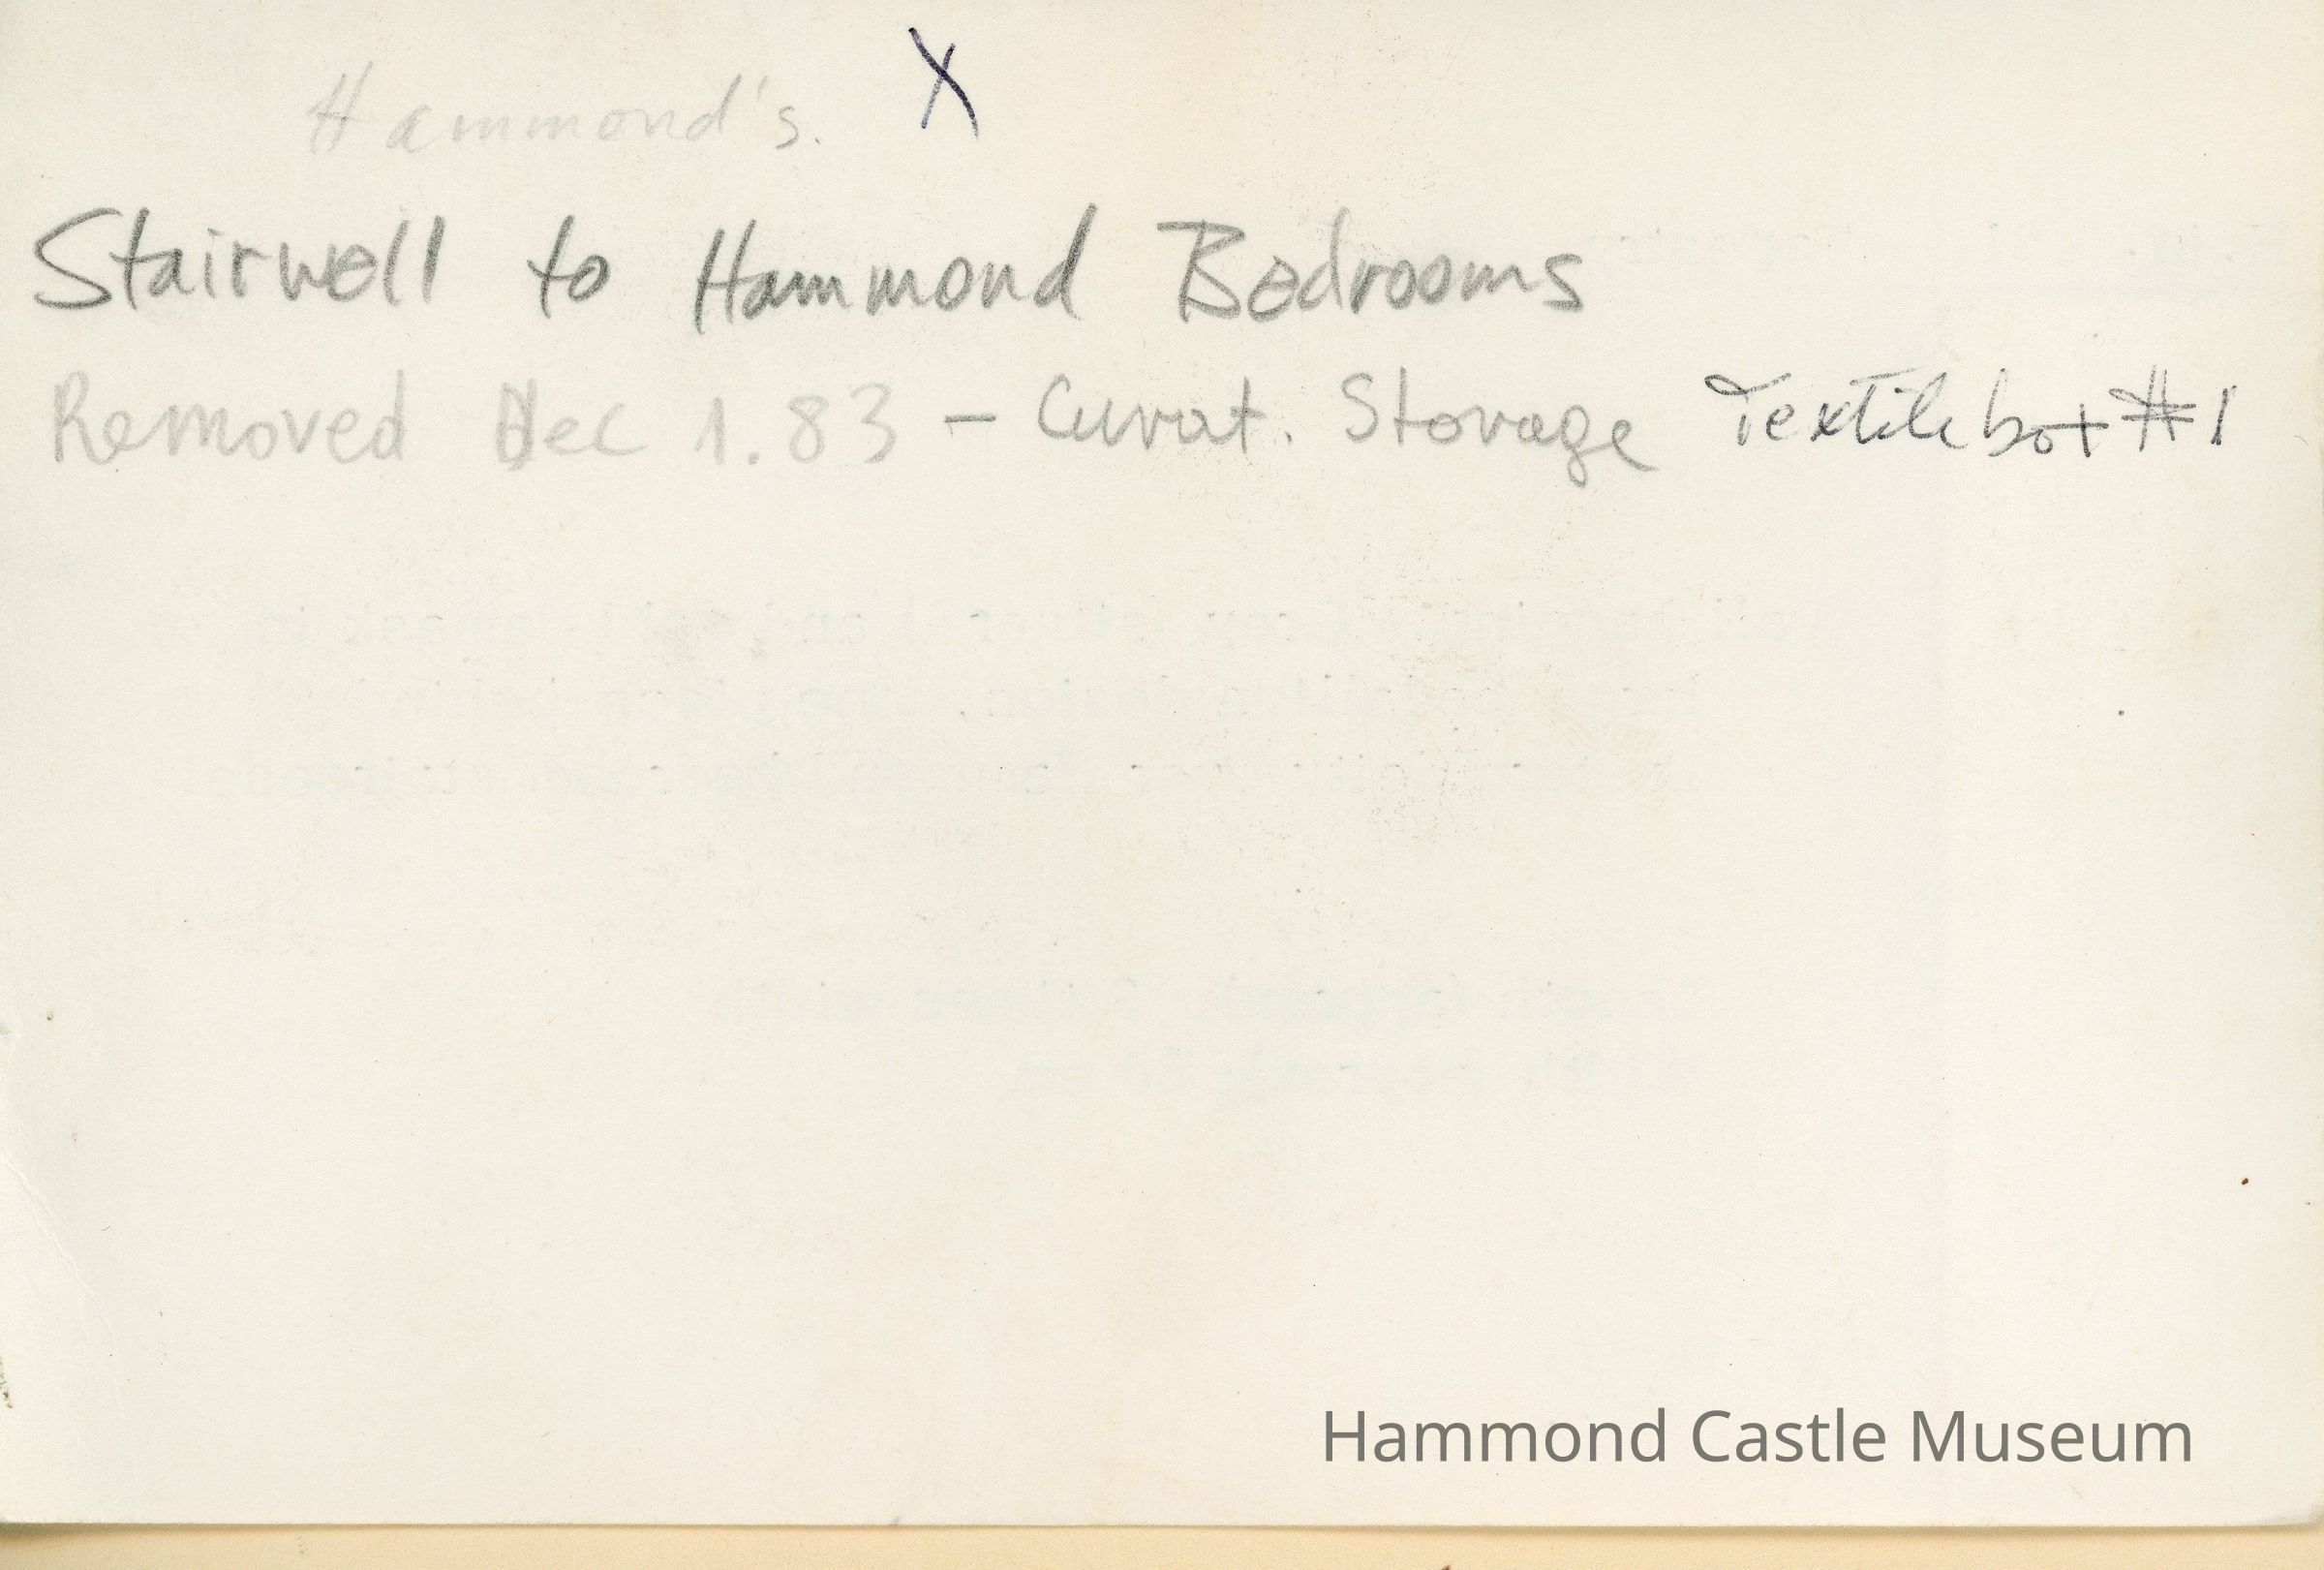 Hammond's. X
Stairwell to Hammond Bedrooms
Removed Dec 1.83 - Curat. Storage Textile box #1
Hammond Castle Museum